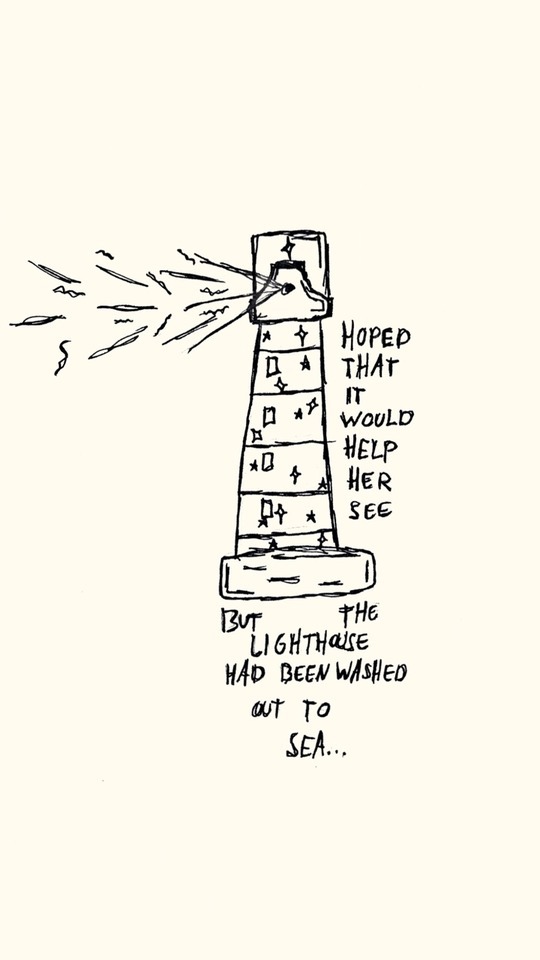 HOPED
THAT
IT
WOULD
HELP
HER
SEE
BUT THE
LIGHTHOUSE
HAD BEEN WASHED
OUT TO
SEA...